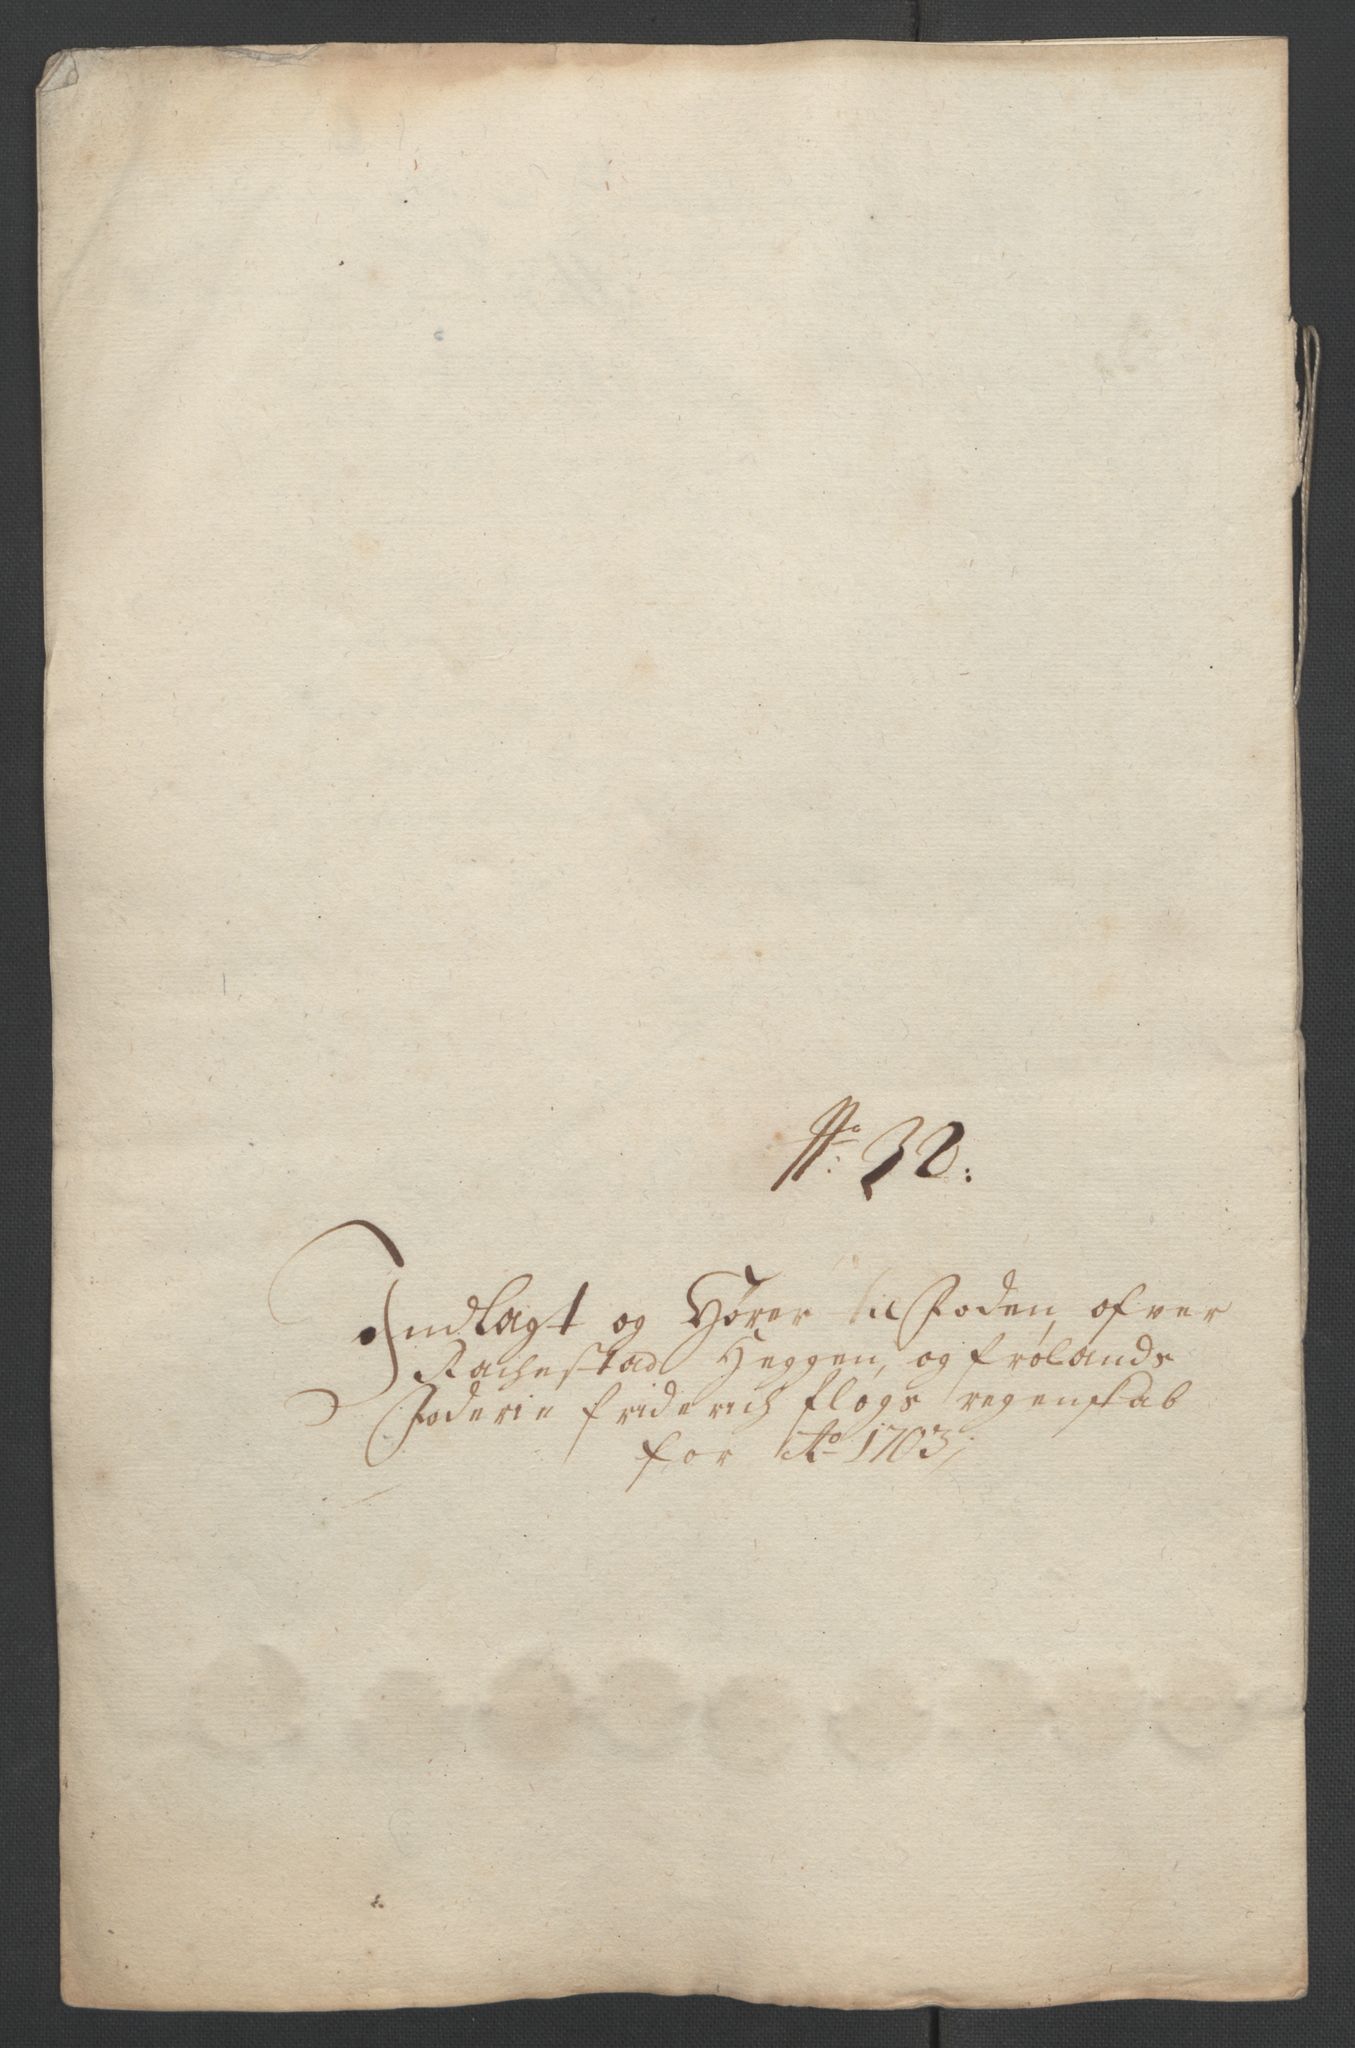 No 32:
Indlagt og Hører til Foden, ofver
Rachestad Heggen, og Frølands
Foderie Friderich Flogs regenskab
for Ao 1703;